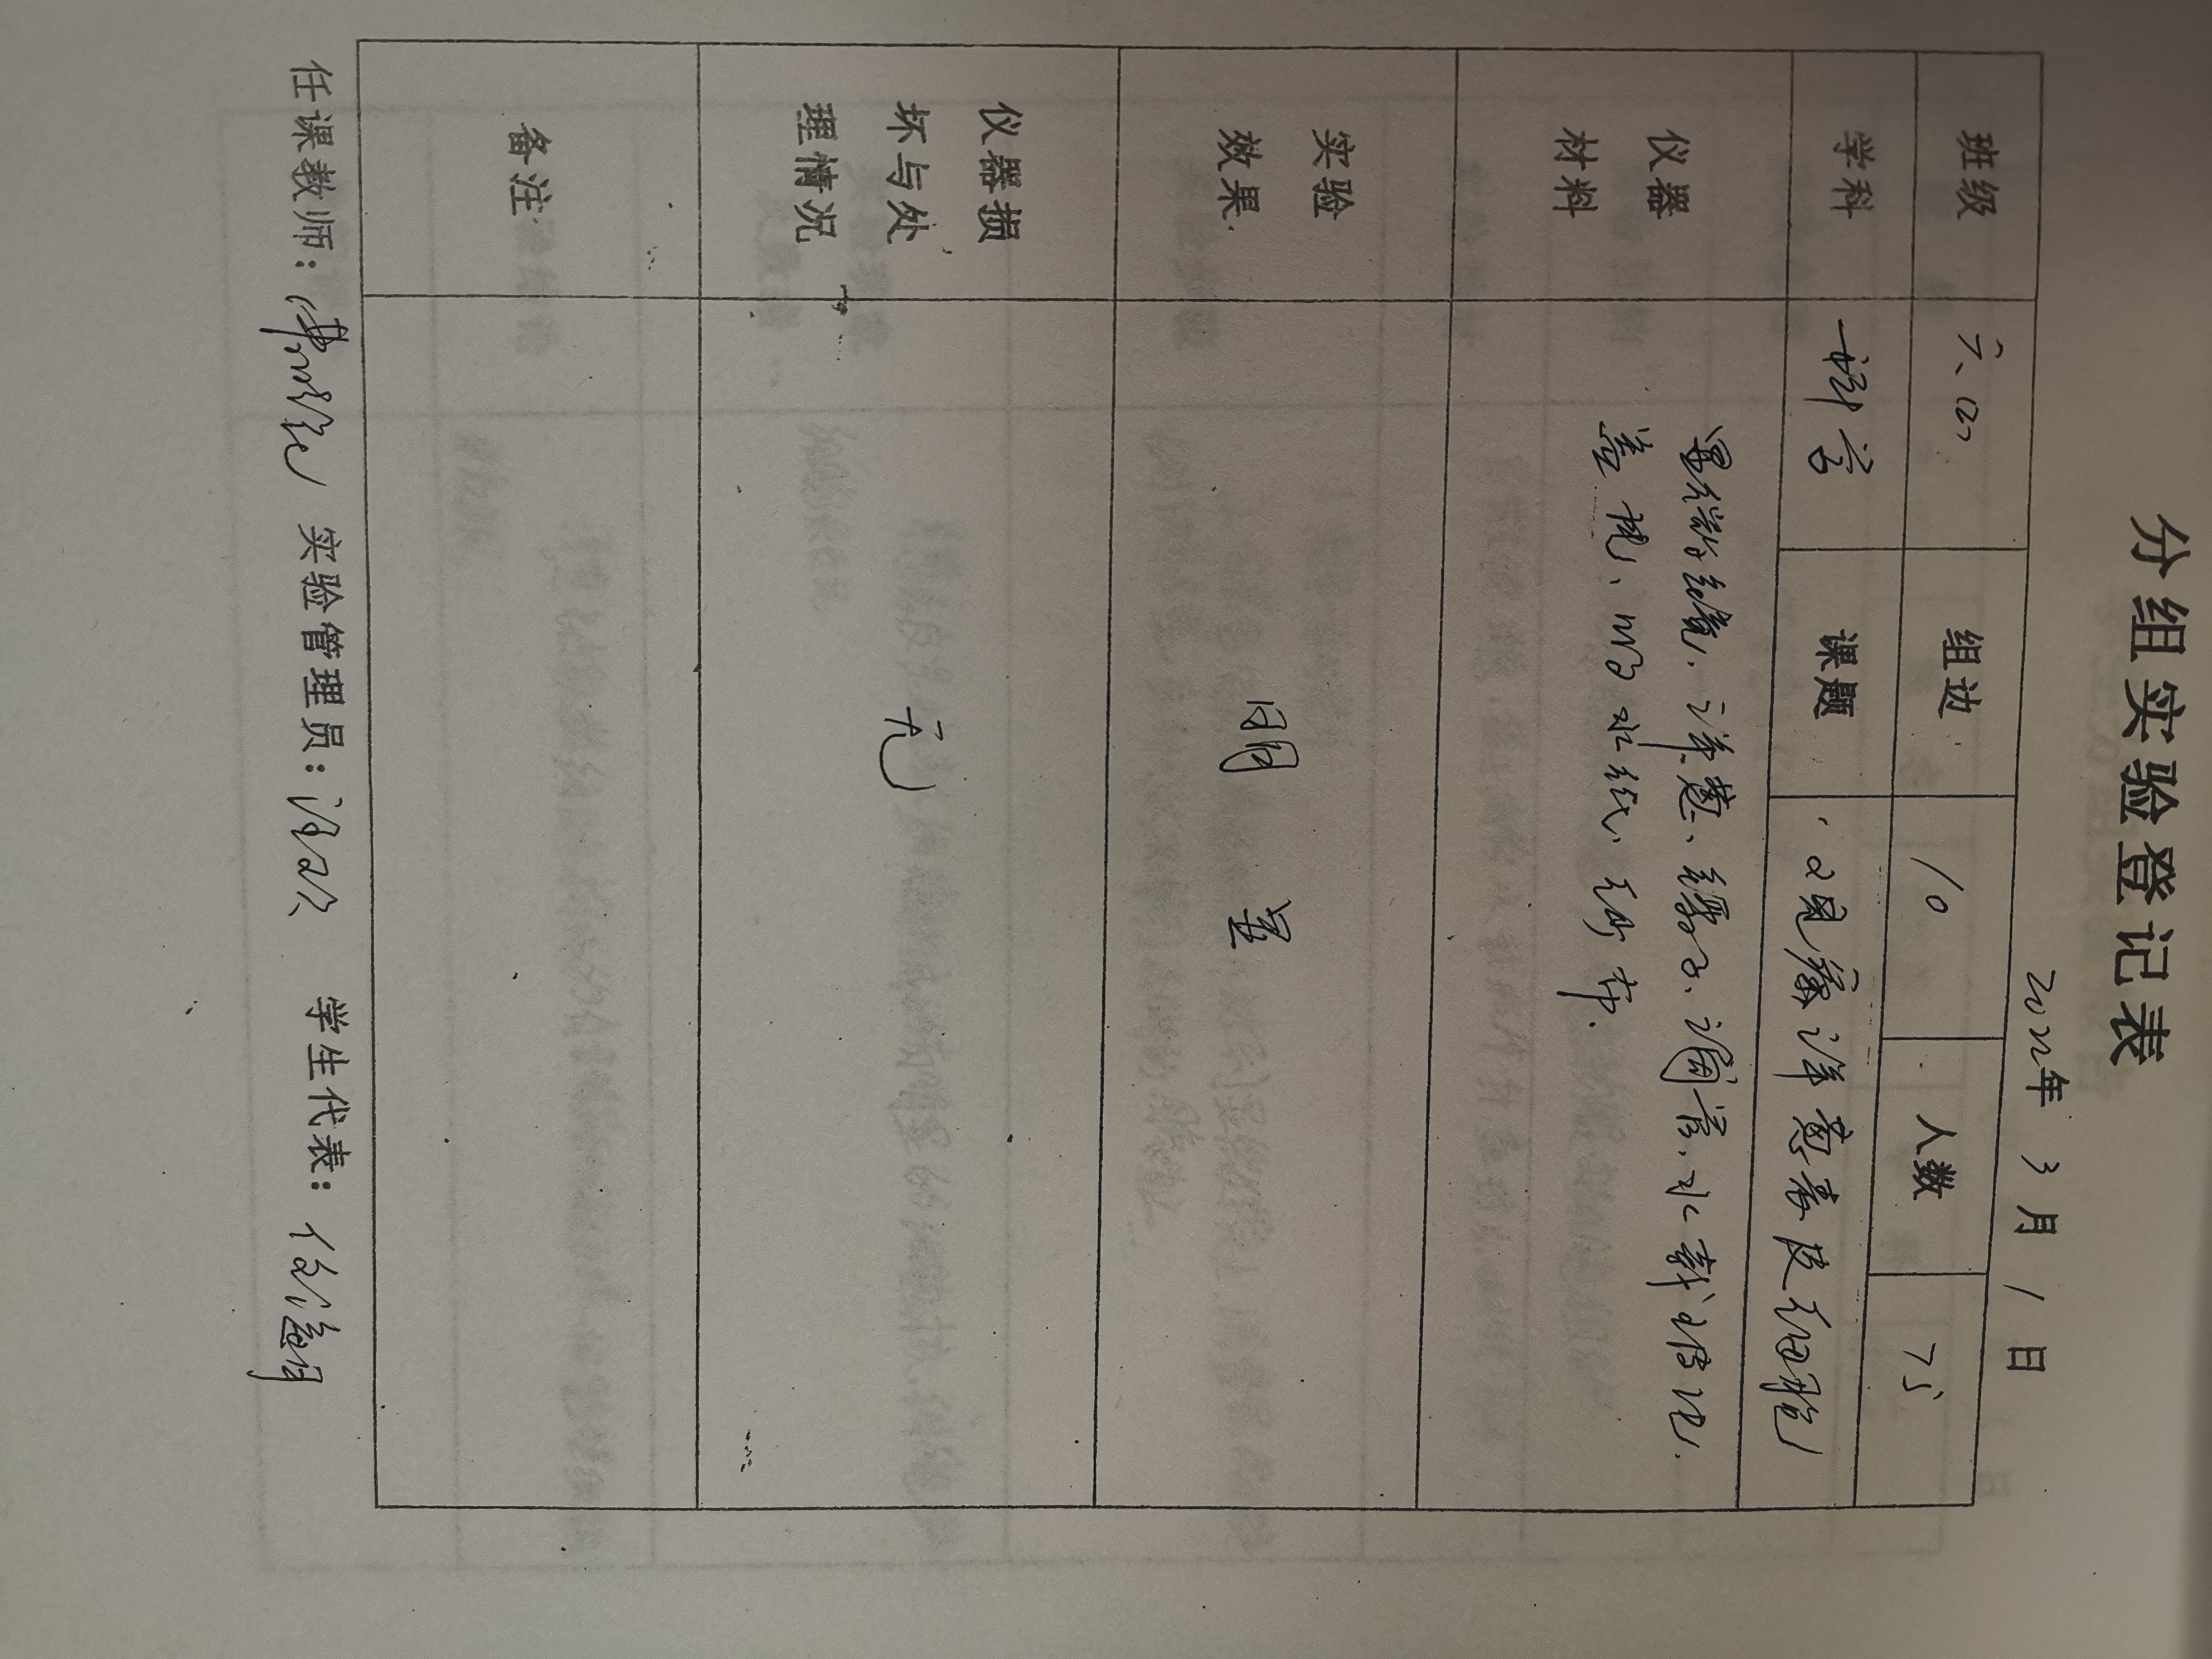 分组实验登记表
2022年 3月 1日
班级 六、(2) 组边 10 人数 75
学科 科学 课题 观察洋葱表皮细胞
仪器 显微镜、洋葱、镊子、滴管、水、载玻片、
材料 盖玻片、吸水纸、纱布.
实验
效果 明显
仪器损
坏与处 无
理情况
备注
任课教师: 实验管理员: 学生代表: